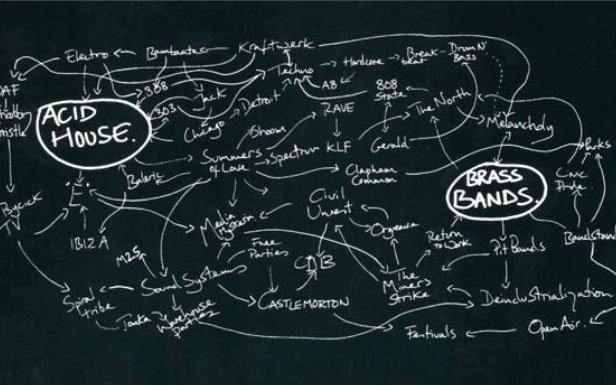 Electro
Bambaataa
Kraftwerk
DAF
Techno
Hardcore
Break-
beat
Drum N'
Bass
ACID
HOUSE.
808
303
Jack
Chicago
Detroit
A8
808
State
RAVE
The North
Melancholy
Shoom
Summers
of Love
Spectrum
KLF
Gerald
Parks
Balearic
Clapham
Common
BRASS
BANDS.
Civic
Pride
"E"
IBIZA
Media
Hysteria
Civil
Unrest
Orgreave
Return
to Work
Pit Bands
Bandstand
M25
Free
Parties
CJB
Sound Systems
The
Miners
Strike
Spiral
Tribe
Tonka
Warehouse
parties
CASTLEMORTON
Deindustrialization
Festivals
Open Air.